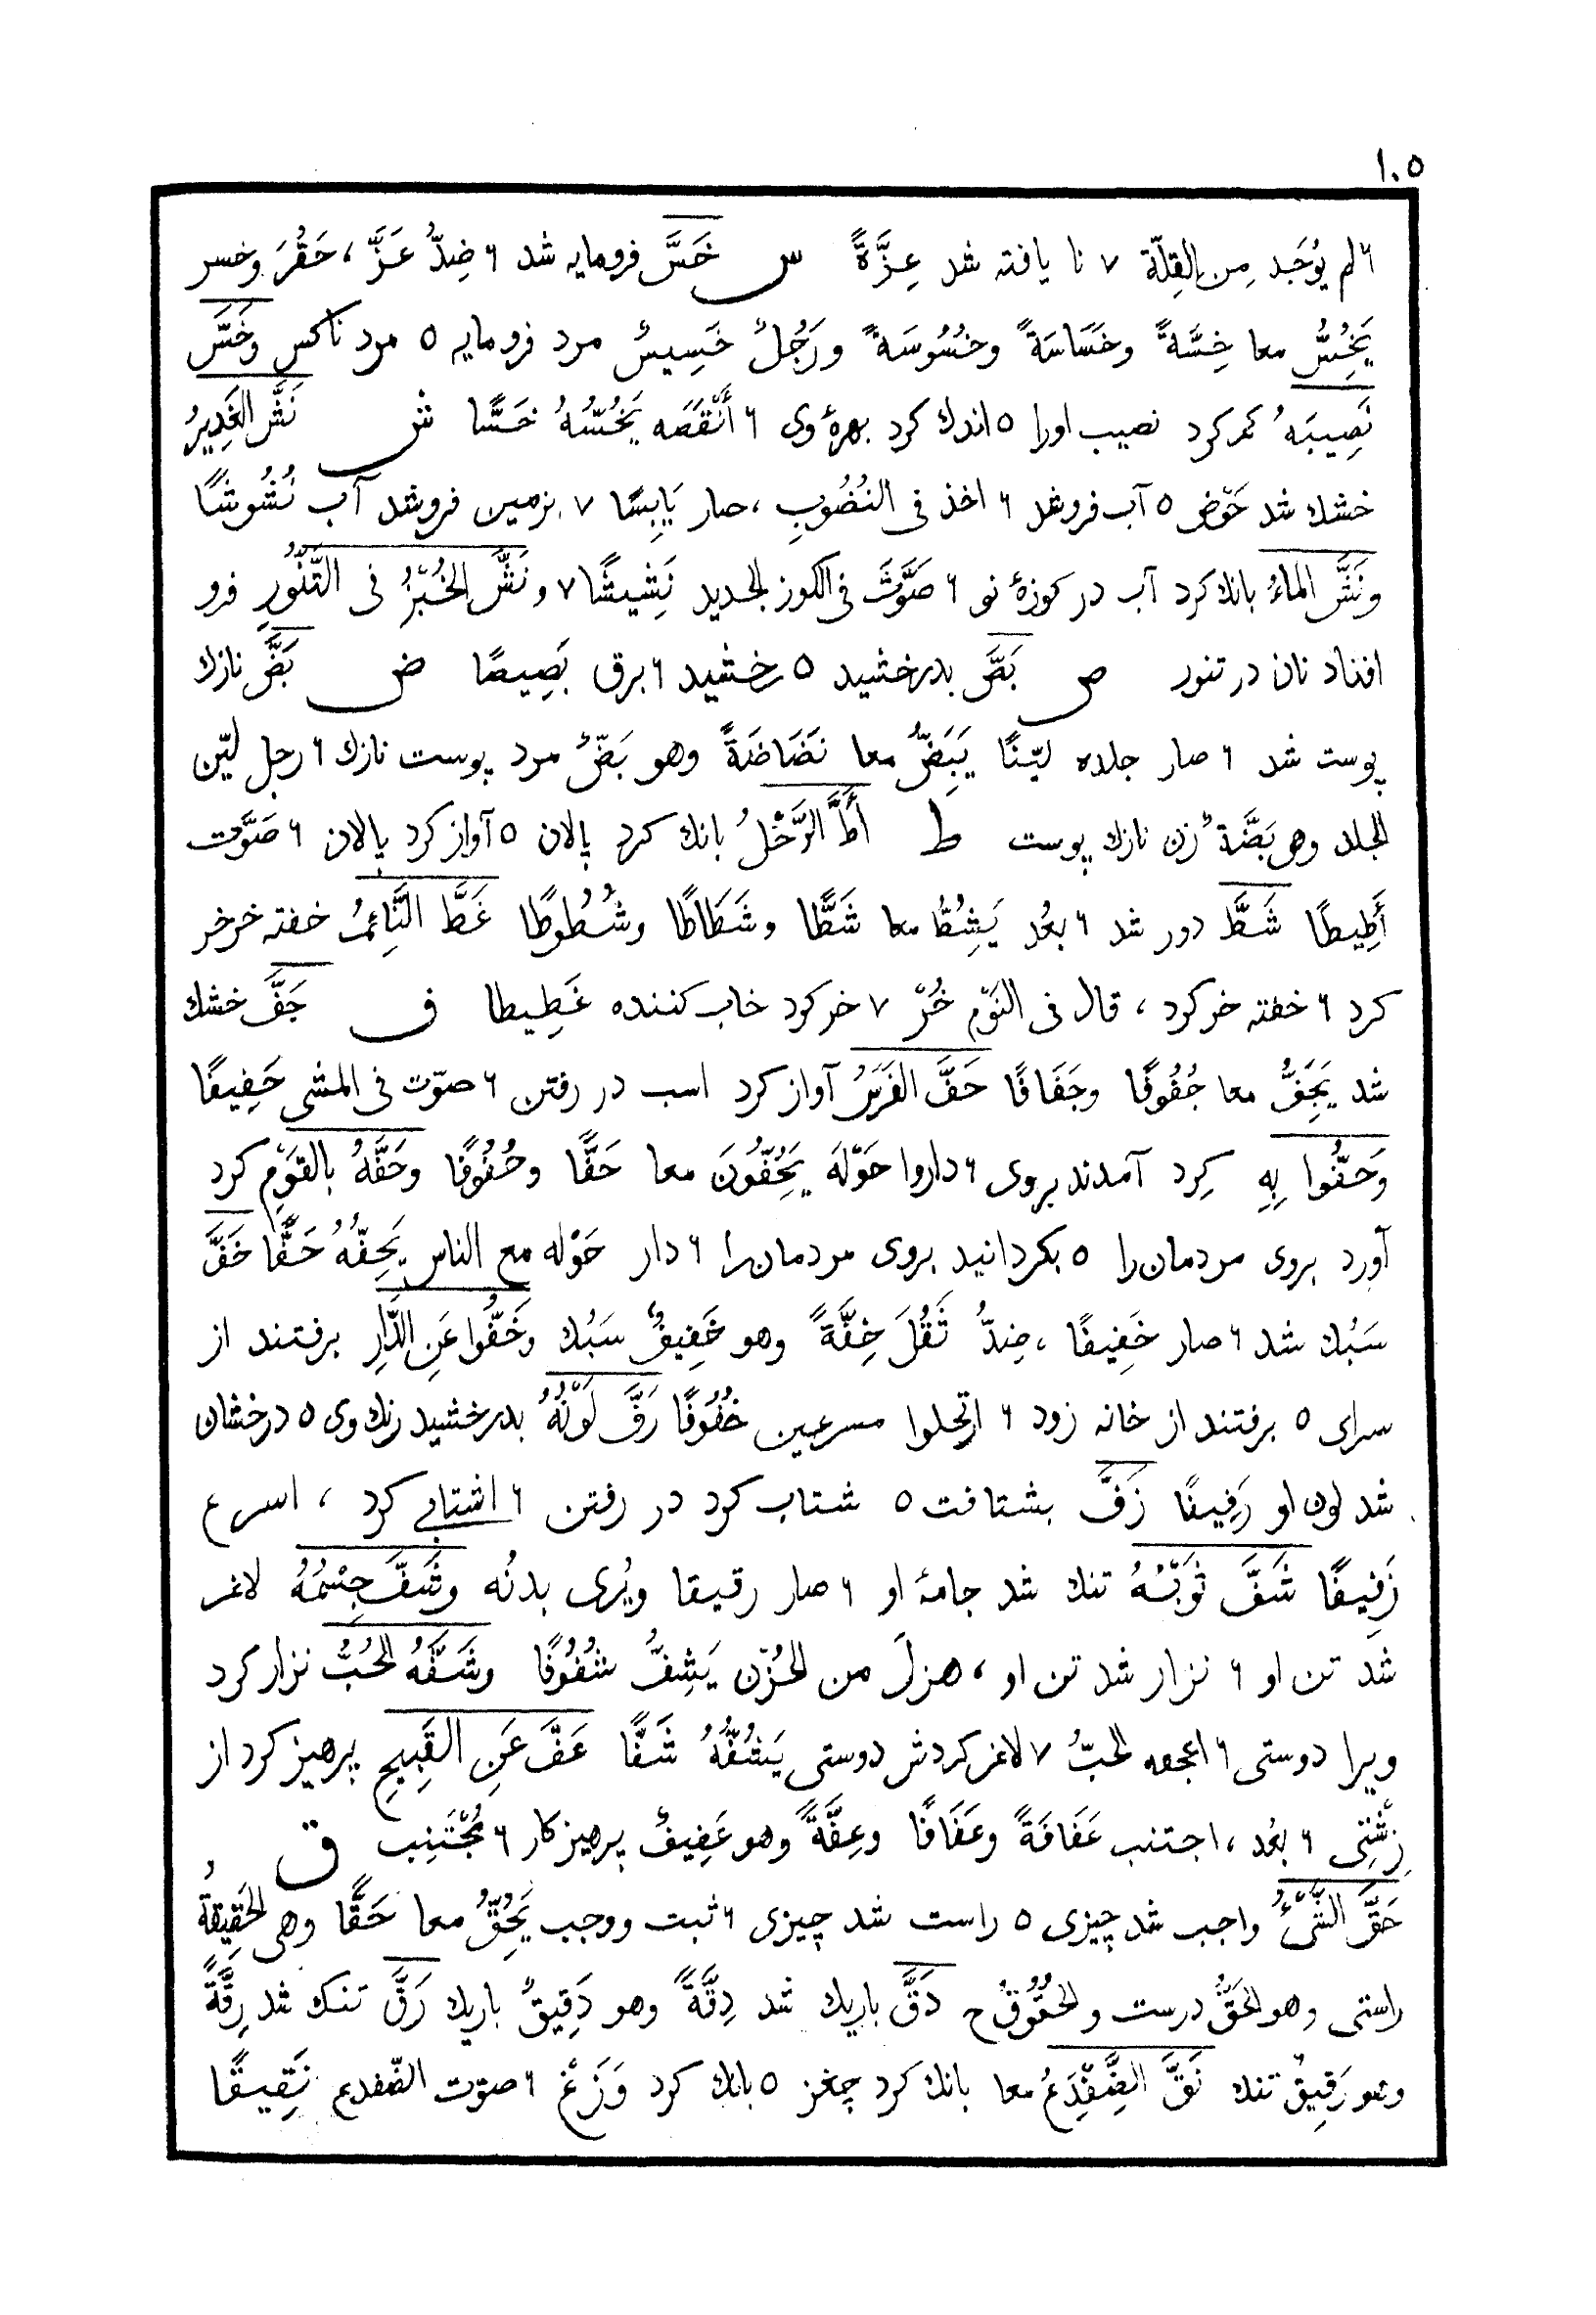 ١٠٥
٦ لم يُوْجَد مِن القِلّة ٧ نا يافته شد عِزَّةً س خَسَّ فرومايه شد ٦ ضِدُّ عَزَّ ، حَقُرَ وخسر
يَخُِسُّ معا خِسَّةً وخَسَاسَةً وخُسُوسَةً ورَجُلٌ خَسِيسٌ مرد فرومايه ٥ مرد ناكس وخَسَّ
نَصِيبَهُ كم كرد نصيب اورا ٥ اندك كرد بهرۀ وى ٦ أَنْقَصَه يَخُسُّهُ خَسًّا ش نَشَّ الغَدِيرُ
خشك شد حَوْض ٥ آب فروشد ٦ اخذ فى النُضُوبِ ، صار يَابِسًا ٧ بزمين فروشد آب نُشُوشًا
ونَشَّ الماءُ بانك كرد آب در كوزۀ نو ٦ صَوَّتَ فى الكوز الجديد نَشِيشًا ٧ ونَشَّ الخُبْزُ فى التَّنُّورِ فرو
افتاد نان در تنور ص بَصَّ بدرخشيد ٥ رخشيد ٦ برق بَصِيصًا ض بَضَّ نازك
پوست شد ٦ صار جلده ليّنًا يَبَِضُّ معا نَضَاضَةً وهو بَضٌّ مرد پوست نازك ٦ رجل ليّن
الجلد وهى بَضَّةٌ زن نازك پوست ط أَطَّ الرَّحْلُ بانك كرد پالان ٥ آواز كرد پالان ٦ صَوَّت
أَطِيطًا شَطَّ دور شد ٦ بعُد يَشُِطُّ معا شَطًّا وشَطَاطًا وشُطُوطًا غَطَّ النَّائِمُ خفته خرخر
كرد ٦ خفته خر كرد ، قال فى النَوْم خُرْ ٧ خر كرد خاب كننده غَطِيطا ف جَفَّ خشك
شد يَجَِفُّ معا جُفُوفًا وجَفَافًا حَفَّ الفَرَسُ آواز كرد اسب در رفتن ٦ صوّت فى المشى حَفِيفًا
وَحَفُّوا بِهِ كِرد آمدند بروى ٦ داروا حَوْلَهَ يَحُِفُّونَ معا حَفًّا وحُفُوفًا وحَفَّهُ بالقَوْمِ كرد
آورد بروى مردمان را ٥ بكردانيد بروى مردمان را ٦ دار حَوْله مع الناس يَحِفُّهُ حَفًّا خَفَّ
سَبُك شد ٦ صار خَفِيفًا ، ضِدُّ ثَقُلَ خِفَّةً وهو خَفِيفٌ سَبُك وخَفُّوا عَنِ الدَّارِ برفتند از
سراى ٥ برفتند از خانه زود ٦ ارتحلوا مسرعين خُفُوفًا رَفَّ لَوْنُهُ بدرخشيد رنك وى ٥ درخشان
شد لون او رَفِيفًا زَفَّ بشتافت ٥ شتاب كرد در رفتن ٦ اشتاب كرد ، اسرع
زَفِيفًا شَفَّ ثَوْبُهُ تنك شد جامۀ او ٦ صار رقيقا ويُرى بدنُه وشَفَّ جِسْمُهُ لاغر
شد تن او ٦ نزار شد تن او ، هزلَ من الحُزْن يَشِفُّ شُفُوفًا وشَفَّهُ الحُبُّ نزار كرد
ويرا دوستى ٦ اعجفه الحبّ ٧ لاغر كردش دوستى يَشُفُّهُ شَفًّا عَفَّ عَنِ القَبِيحِ پرهيز كرد از
زِشْتِى ٦ بعُد ، اجتنب عَفَافَةً وعَفَافًا وعِفَّةً وهو عَفِيفٌ پرهيز كار ٦ مُجْتَنِب ق
حَقَّ الشَّىْءُ واجب شد چيزى ٥ راست شد چيزى ٦ ثبت ووجب يَحُِقُّ معا حَقًّا وهى الحَقِيقَةُ
راستى وهو الحَقُّ درست والحُقُوقُ ح دَقَّ باريك شد دِقَّةً وهو دَقِيقٌ باريك رَقَّ تنك شد رِقَّةً
وهو رَقِيقٌ تنك نَقَّ الضِّفْدَِعُ معا بانك كرد چغز ٥ بانك كرد وَزَغْ ٦ صوّت الضّفدع نَقِيقًا